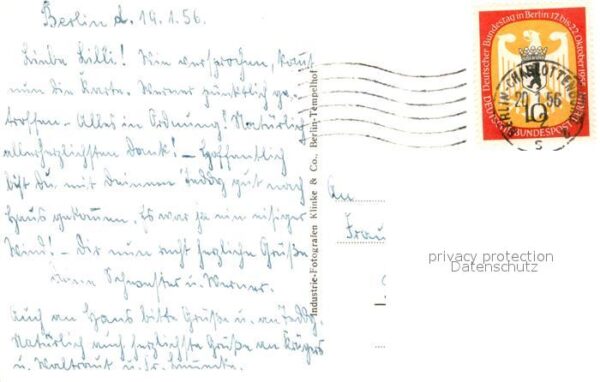 Berlin d. 19.1.56.
Liebe Lilli! Wie versprochen, kommt
nun die Karte. Werner pünktlich ge-
troffen. Alles in Ordnung! Natürlich
allerherzlichsten Dank! - Hoffentlich
bist Du mit Deinem Teddy gut nach
Haus gekommen. Es war ja ein eisiger
Wind! - Dir nun recht herzliche Grüße
Deine Schwester u. Werner.
Auch an Hans bitte Grüße u. an Teddy.
Natürlich auch herzlichste Grüße an
u. Waltraut u.
Industrie-Fotografen Klinke & Co., Berlin-Tempelhof
Deutscher Bundestag in Berlin 17. bis 22. Oktober 1955
10
DEUTSCHE BUNDESPOST BERLIN
BERLIN-CHARLOTTENBURG
20 56
An
Frau
privacy protection
Datenschutz